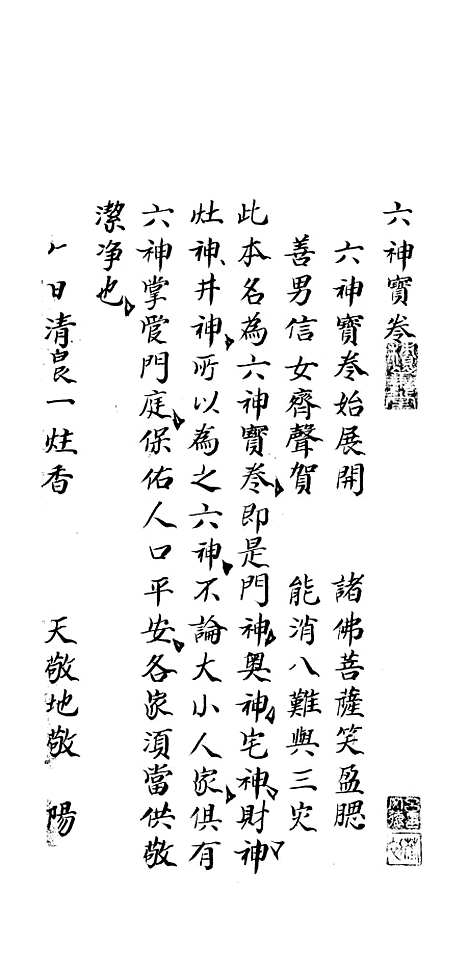 六神寳卷
六神寳卷始展開　諸佛菩薩笑盈腮
善男信女齊聲賀　能消八難與三災
此本名為六神寳卷即是門神奧神宅神財神
灶神井神所以為之六神不論大小人家俱有
六神掌管門庭保佑人口平安各家須當供敬
潔净也
日清良一炷香　天敬地敬　陽